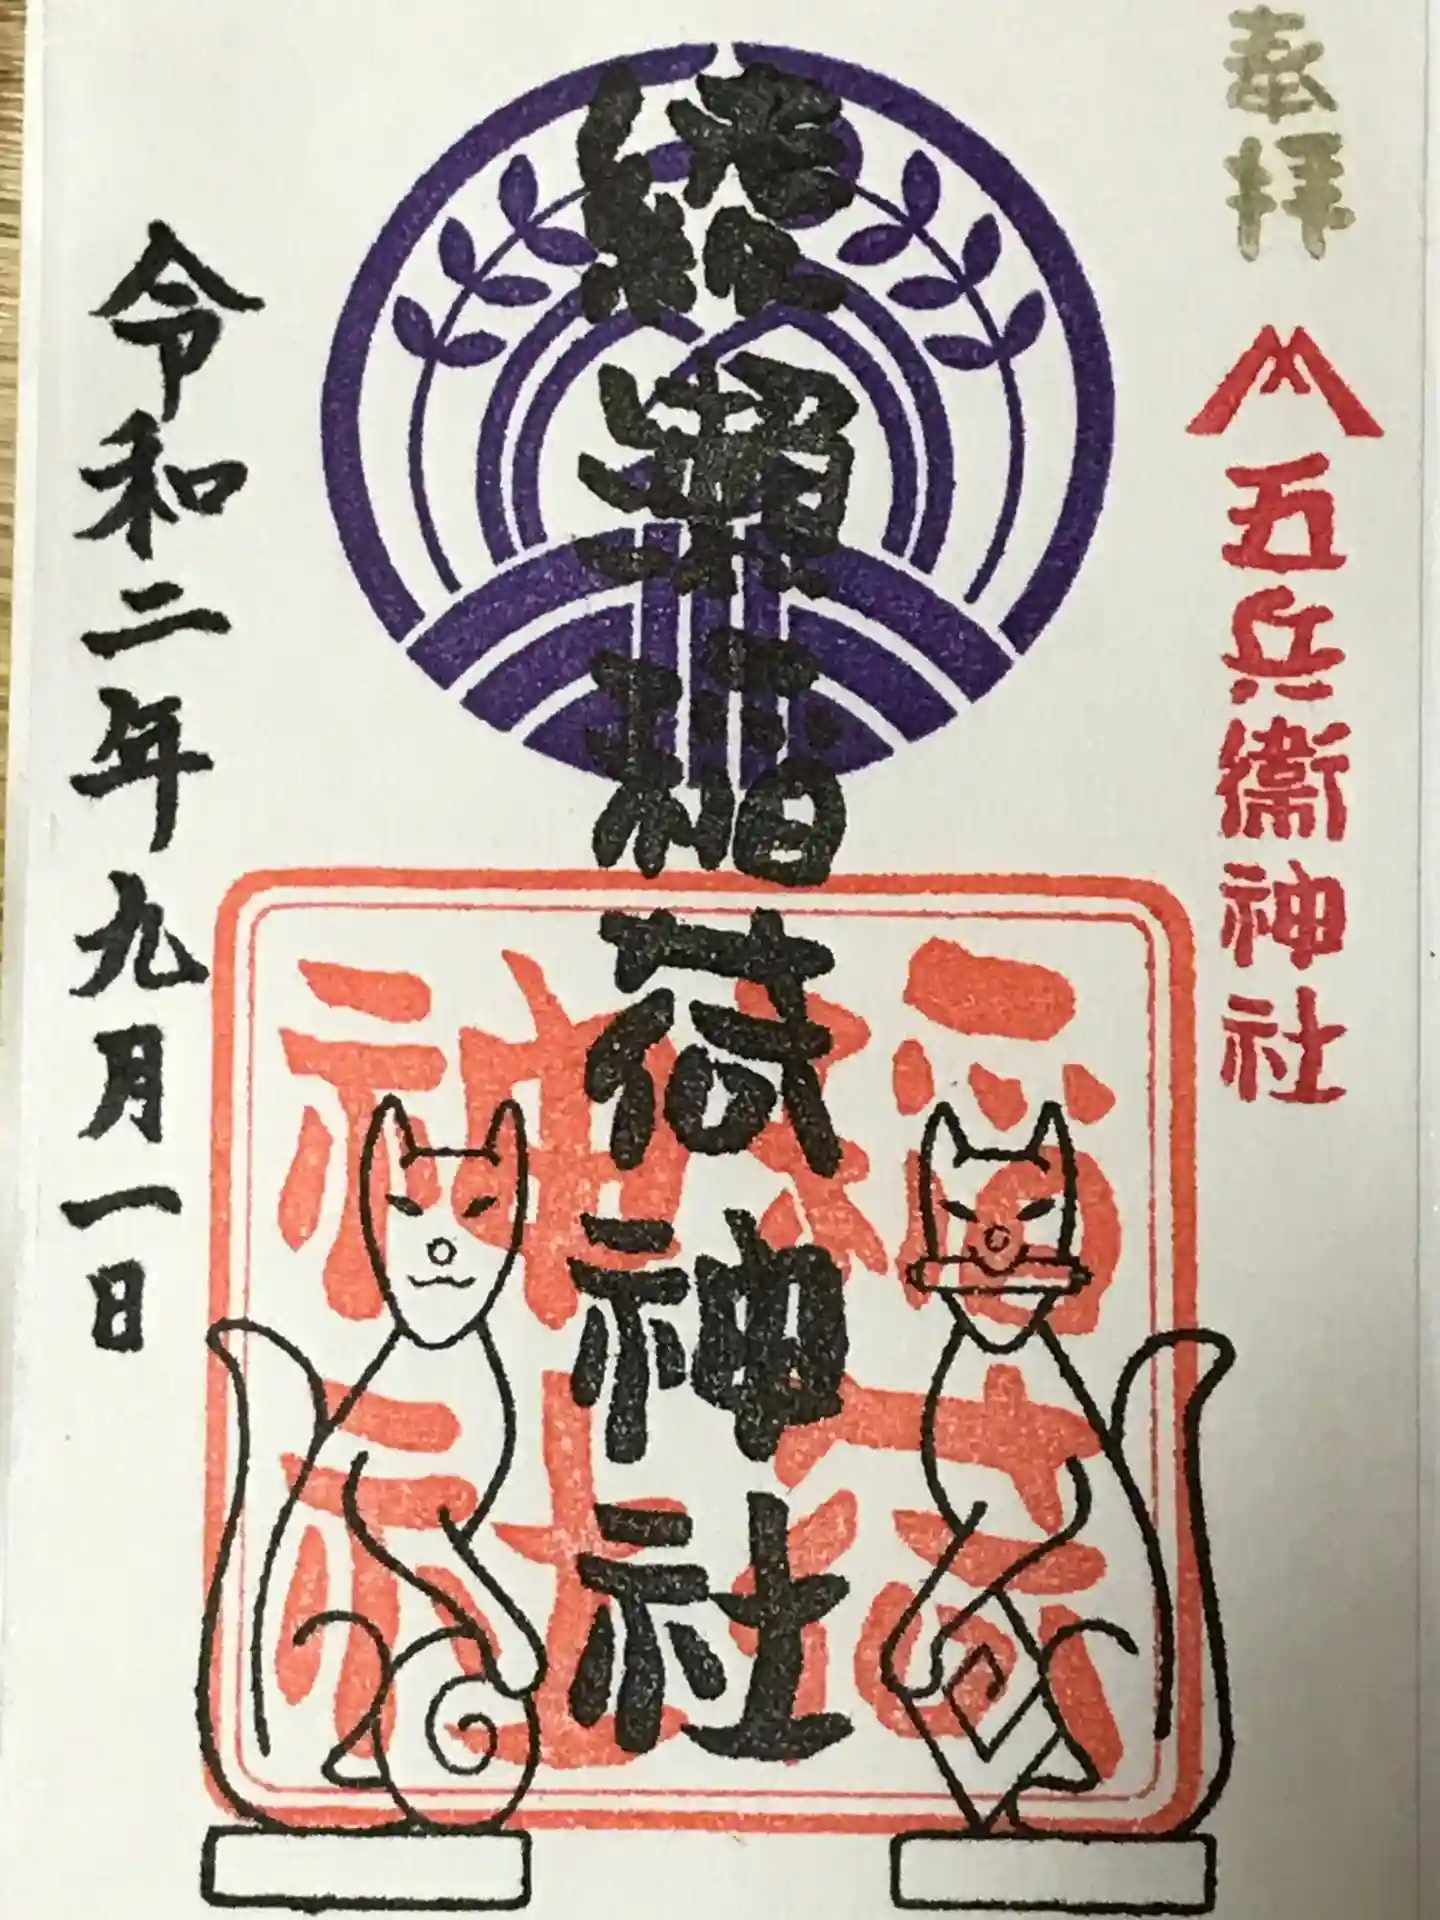 奉拝
五兵衛神社
綾瀬稲荷神社
稲荷
神社
令和二年九月一日